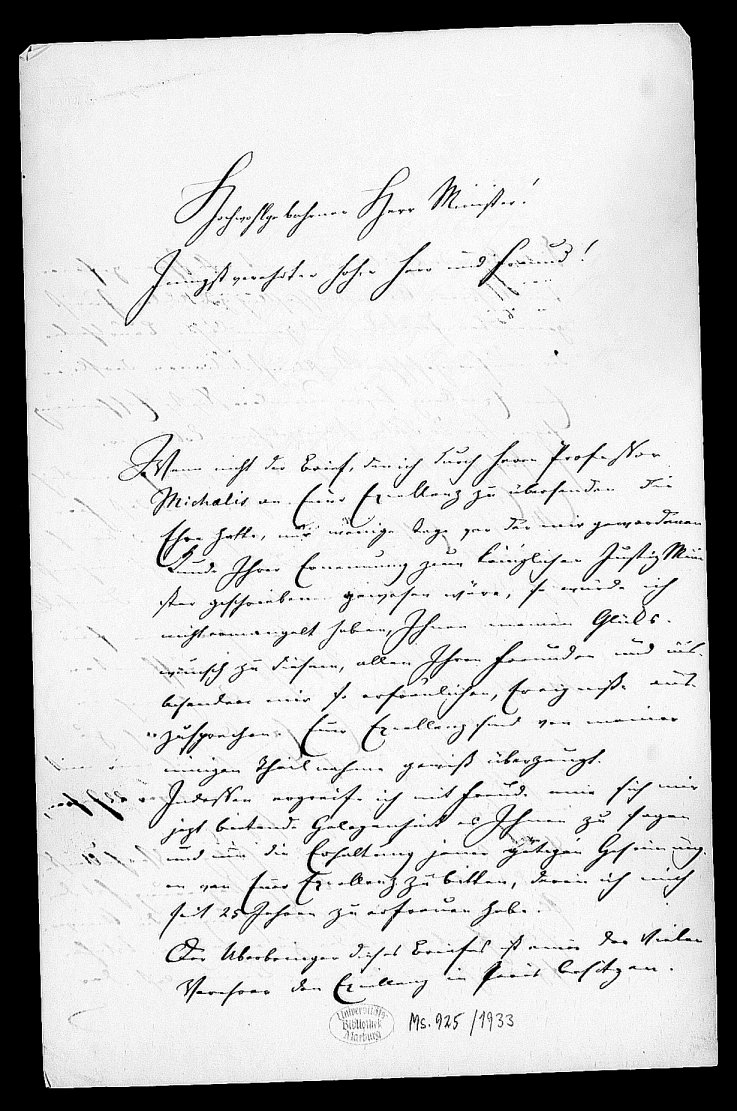 Hochwohlgebohrner Herr Minister!
Innigst verehrter hoher Herr und Freund!
Wenn nicht der Brief, den ich durch Herrn Professor
Michalis an Euer Excellenz zu übersenden die
Ehre hatte, nur wenige Tage vor der mir gewordenen
Kunde Ihrer Ernennung zum königlichen Justiz Mini
ster geschrieben gewesen wäre, so würde ich
nicht ermangelt haben, Ihnen meinen Glücks-
wunsch zu diesem, allen Ihren Freunden und ins-
besondere mir so erfreulichen, Ereigniße aus-
zusprechen. Euer Excellenz sind von meiner
innigen Theilnahme gewiß überzeugt.
Indessen ergreife ich mit Freude eine sich mir
jezt bietende Gelegenheit es Ihnen zu sagen
und um die Erhaltung jener gütigen Gesinnung-
en von Euer Excellenz zu bitten, deren ich mich
seit 25 Jahren zu erfreuen habe.
Der Uberbringer dieses Briefes ist einer der vielen
Verehrer den Excellenz in Paris besitzen.
Universitäts
Bibliothek
Marburg
Ms. 925/1933